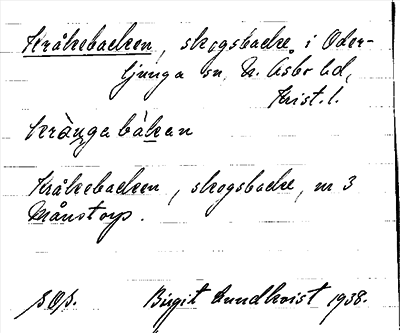 Kråkebacken, skogsbacke i Oder-
ljunga sn, N. Åsbo hd,
Krist. l.
kràngabákan
Kråkebacken, skogsbacke, nr 3
Månstorp.
Birgit Lundkvist 1938.